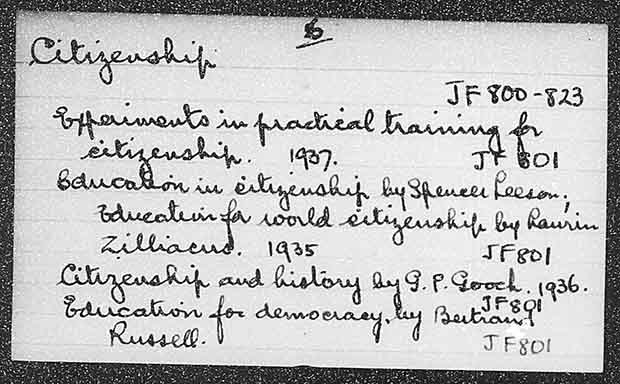 Citizenship
JF 800-823
Experiments in practical training for
citizenship. 1937. JF 801
Education in citizenship by Spencer Leeson;
Education for world citizenship by Laurin
Zilliacus. 1935 JF801
Citizenship and history by G. P. Gooch. 1936.
JF801
Education for democracy, by Bertrand
Russell. JF801